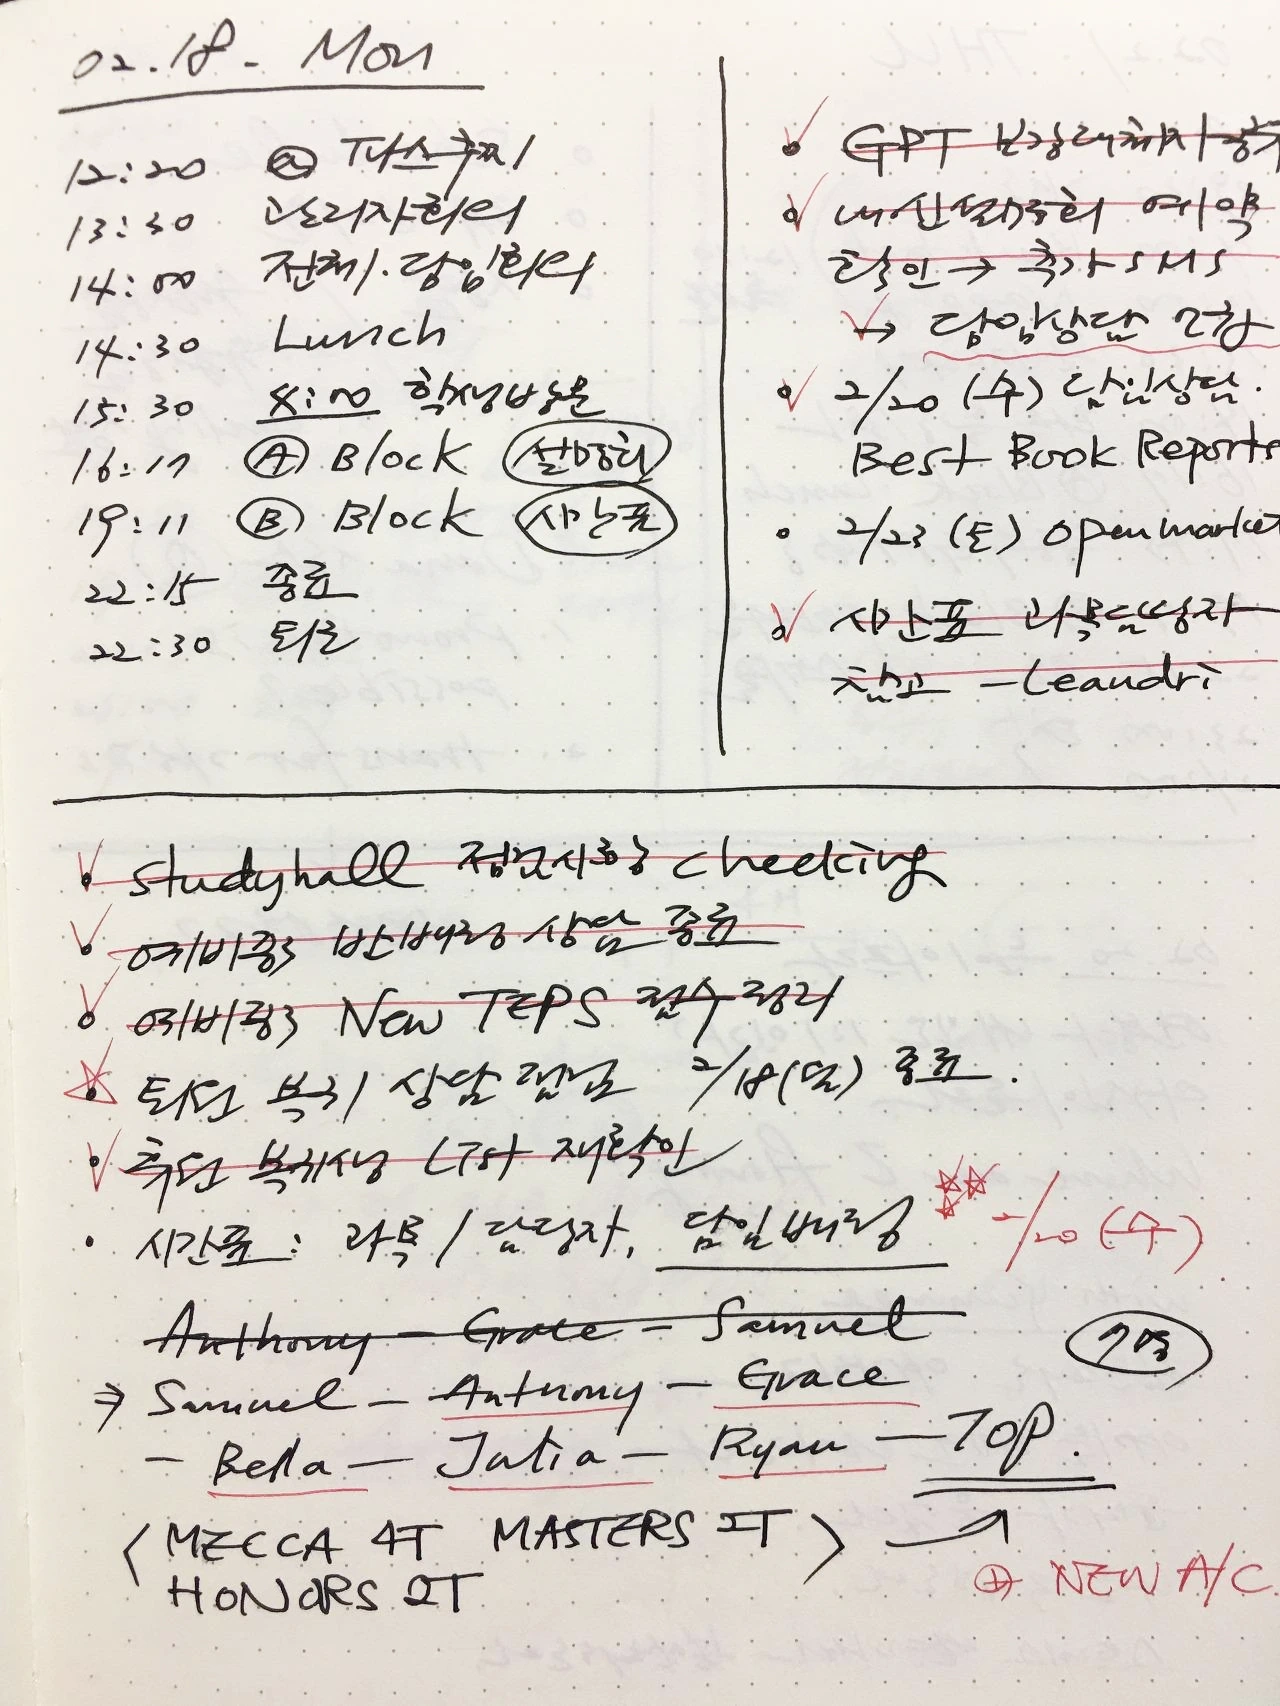 02.18. Mon
12:20 @ 타스쿠찌
13:30 관리자회의
14:00 전체/담임회의
14:30 Lunch
15:30 4:00 학생방문
16:17 Ⓐ Block 설명회
19:11 Ⓑ Block 시간표
22:15 종료
22:30 퇴근
GPT
내신설명회 예약
확인 → 추가 SMS
→ 담임상담 2학
2/20 (수) 담임상담.
Best Book Reports
2/23 (토) Open market
시간표 과목담당자
참고 - Leandri
Studyhall 점검사항 checking
예비중3 반배정 상담 종료
예비중3 New TEPS 점수정리
퇴원 복귀 상담 2/18(월) 종료.
휴원 복귀생 LIST 재확인
시간표: 과목 / 담당자, 담임배정 2/20 (수)
Anthony - Grace - Samuel
7명
⇒ Samuel - Anthony - Grace
- Bella - Julia - Ryan - TOP.
〈 MECCA 4T MASTERS 2T 〉
HONORS 2T
⊕ NEW A/C